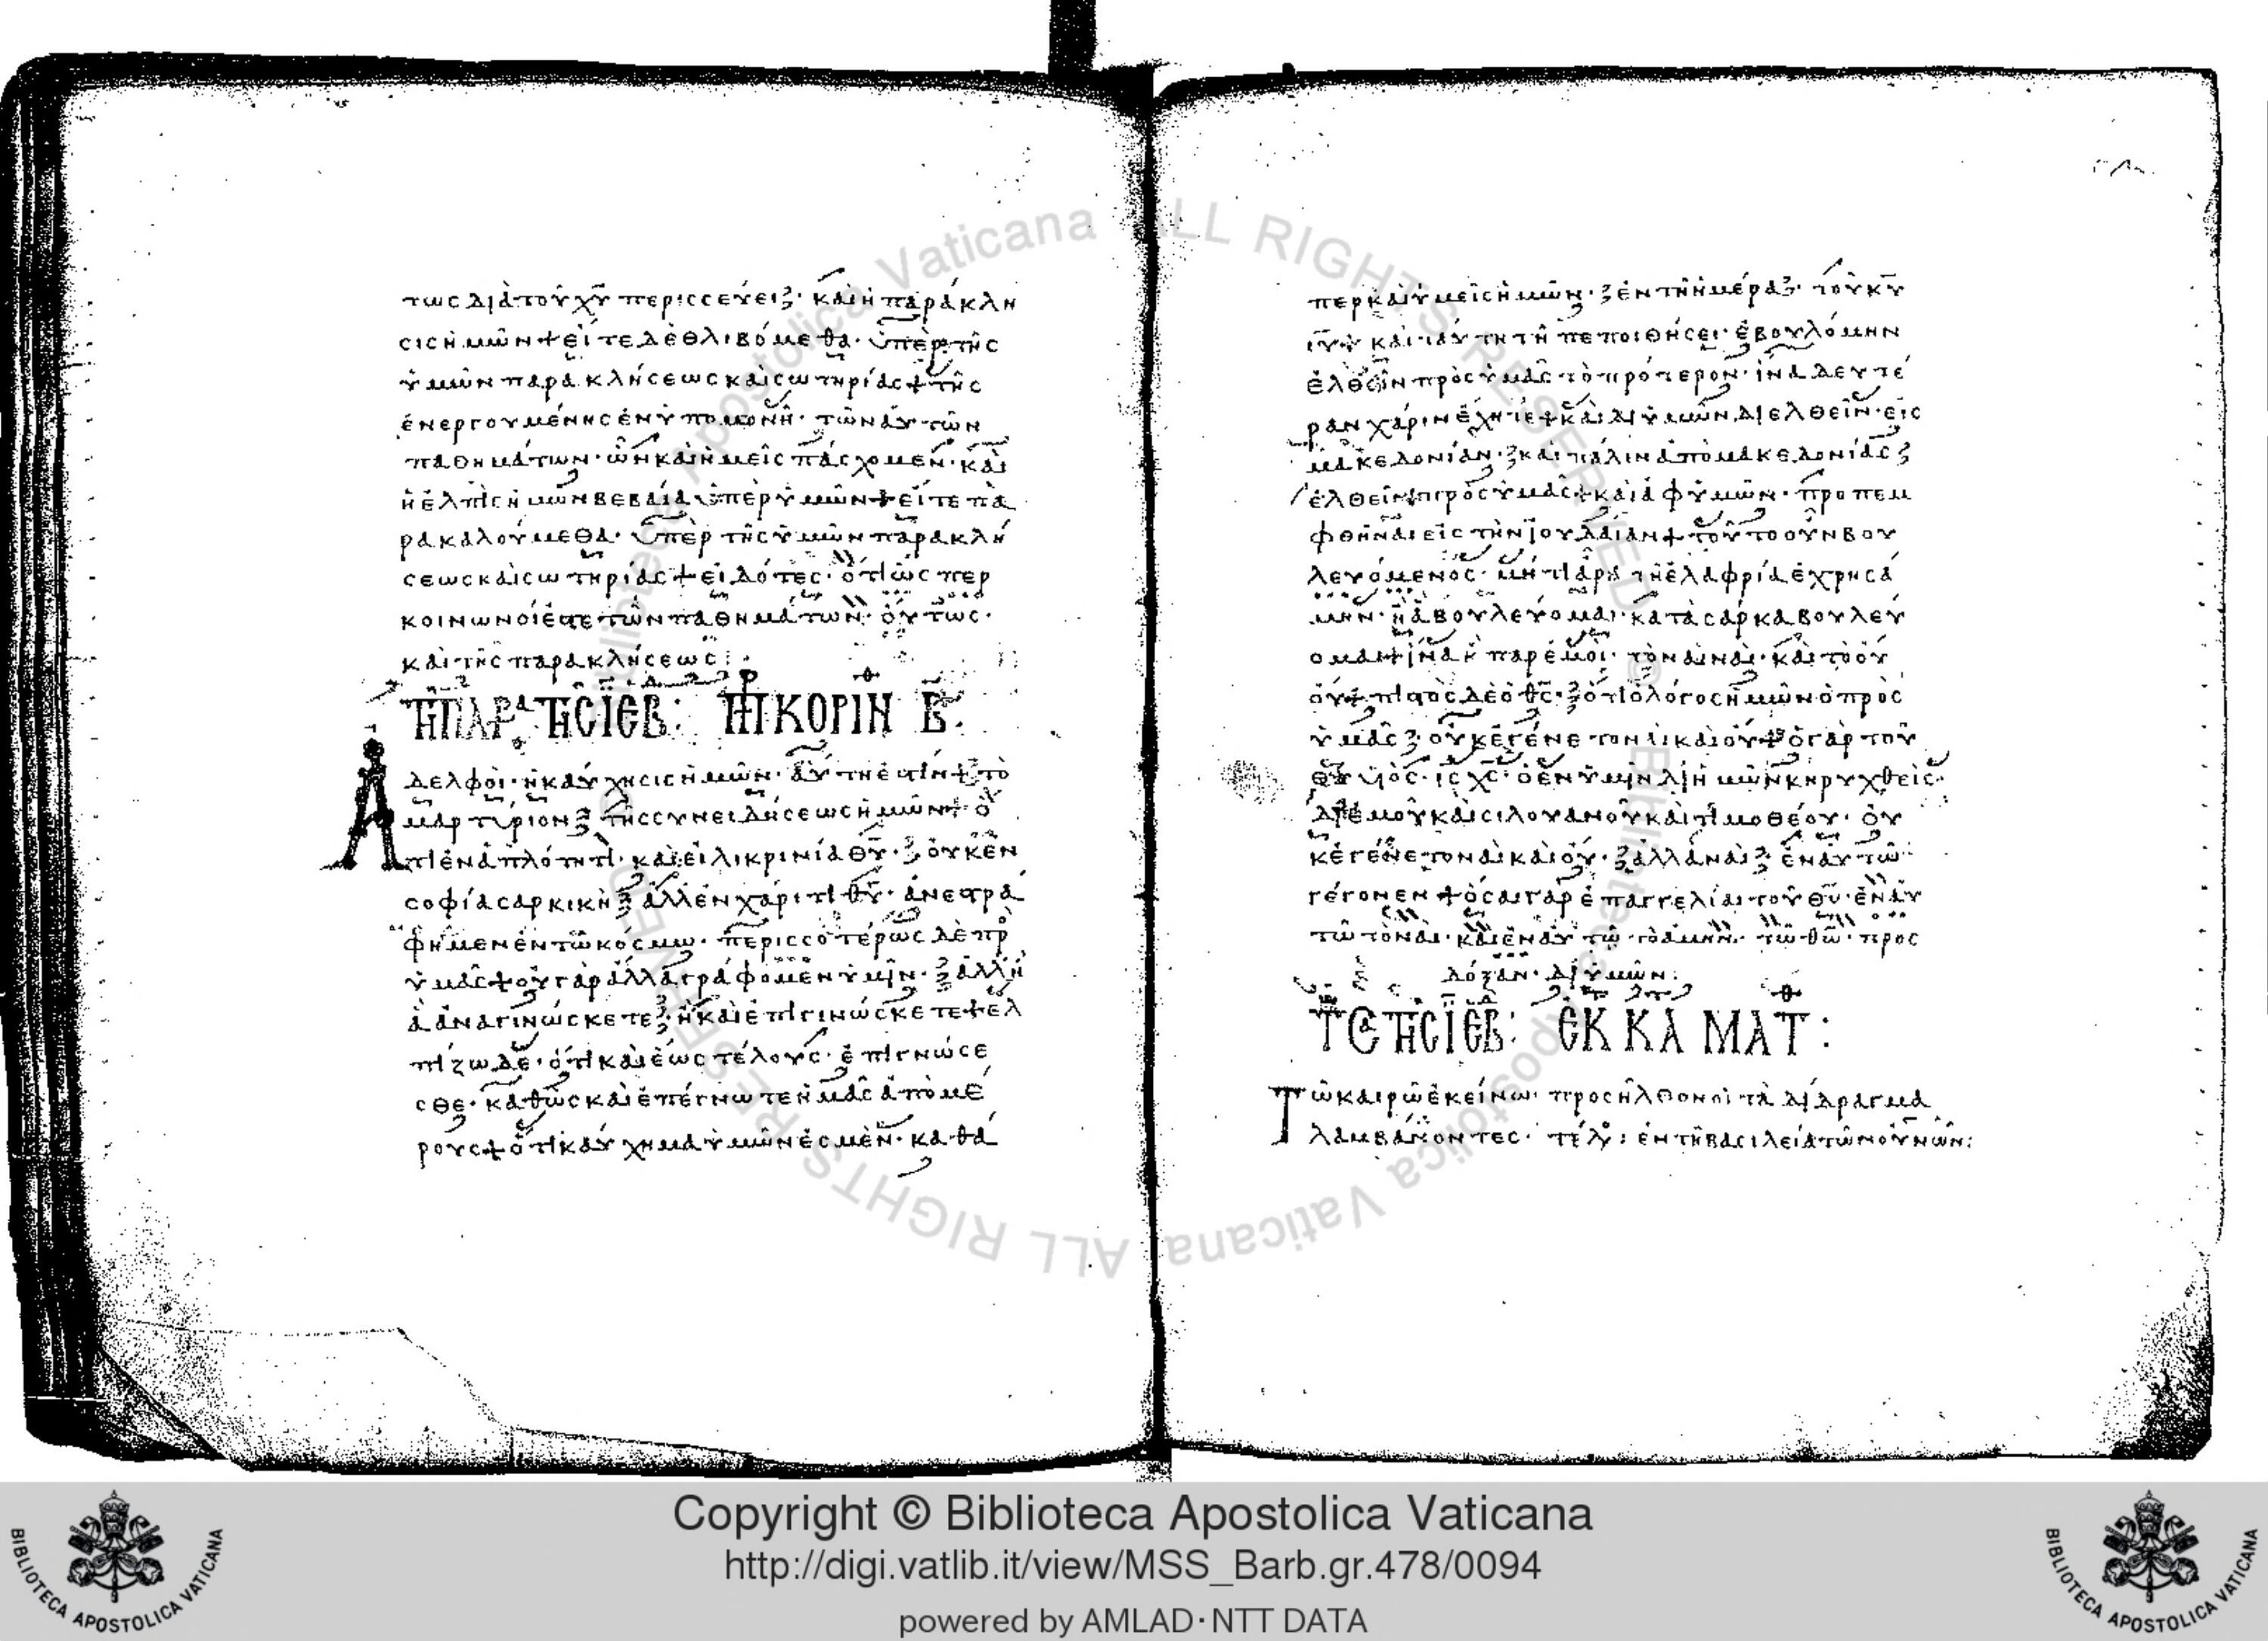 τως διὰ τοῦ χυ περισσεύει· καὶ ἡ παράκλη
σις ἡμῶν + εἴτε δὲ θλιβόμεθα· ὑπὲρ τῆς
ὑμῶν παρακλήσεως καὶ σωτηρίας + τῆς
ἐνεργουμένης ἐν ὑπομονῆ· τῶν αὐτῶν
παθημάτων· ὧν καὶ ἡμεῖς πάσχομεν· καὶ
ἡ ἐλπὶς ἡμῶν βεβαία ὑπὲρ ὑμῶν + εἴτε πα
ρακαλούμεθα· ὑπὲρ τῆς ὑμῶν παρακλή
σεως καὶ σωτηρίας + εἰδότες· ὅτι ὥσπερ
κοινωνοί ἐστε τῶν παθημάτων· οὕτως·
καὶ τῆς παρακλήσεως:
κορινθ β:
Ἀδελφοὶ· ἡ καύχησις ἡμῶν· αὕτη ἐστίν + τὸ
μαρτύριον τῆς συνειδήσεως ἡμῶν + ὅ
τι ἐν ἁπλότητι· καὶ εἰλικρινία θυ· οὐκ ἐν
σοφία σαρκικῆ ἀλλ' ἐν χάριτι θυ· ἀνεστρά
φημεν ἐν τῶ κόσμω· περισσοτέρως δὲ πρ
ὑμᾶς + οὐ γὰρ ἄλλα γράφομεν ὑμῖν· ἀλλ' ἢ
ἃ ἀναγινώσκετε ἢ καὶ ἐπιγινώσκετε + ἐλ
πίζω δὲ· ὅτι καὶ ἕως τέλους· ἐπιγνώσε
σθε· καθὼς καὶ ἐπέγνωτε ἡμᾶς ἀπὸ μέ
ρους + ὅτι καύχημα ὑμῶν ἐσμὲν· καθά
περ καὶ ὑμεῖς ἡμῶν· ἐν τῆ ἡμέρα· τοῦ κυ
ιυ + καὶ ταύτη τῆ πεποιθήσει· ἐβουλόμην
ἐλθεῖν πρὸς ὑμᾶς τὸ πρότερον· ἵνα δευτέ
ραν χάριν ἔχητε + καὶ δι' ὑμῶν διελθεῖν· εἰς
μακεδονίαν· καὶ πάλιν ἀπὸ μακεδονίας
ἐλθεῖν πρὸς ὑμᾶς + καὶ ἀφ' ὑμῶν· προπεμ
φθῆναι εἰς τὴν ἰουδαίαν + τοῦτο οὖν βου
λευόμενος· μή τι ἄρα τῆ ἐλαφρία ἐχρησά
μην· ἢ ἃ βουλεύομαι· κατὰ σάρκα βουλεύ
ομαι + ἵνα ἦ παρ' ἐμοὶ· τὸ ναὶ ναὶ· καὶ τὸ οὔ
οὔ + πιστὸς δὲ ὁ θς· ὅτι ὁ λόγος ἡμῶν ὁ πρὸς
ὑμᾶς οὐκ ἐγένετο ναὶ καὶ οὔ + ὁ γὰρ τοῦ
θυ υἱός· ις χς· ὁ ἐν ὑμῖν δι' ἡμῶν κηρυχθεὶς·
δι' ἐμοῦ καὶ σιλουανοῦ καὶ τιμοθέου· οὐ
κ ἐγένετο ναὶ καὶ οὔ· ἀλλὰ ναὶ ἐν αὐτῶ
γέγονεν + ὅσαι γὰρ ἐπαγγελίαι τοῦ θυ· ἐν αὐ
τῶ τὸ ναὶ· καὶ ἐν αὐτῶ τὸ ἀμὴν· τῶ θω· πρὸς
δόξαν· δι' ὑμῶν:
ἐκ κα ματ:
Τῶ καιρῶ ἐκείνω· προσῆλθον οἱ τὰ δίδραγμα
λαμβάνοντες· τέλ: ἐν τῆ βασιλεία τῶν οὐνῶν:
Copyright © Biblioteca Apostolica Vaticana
http://digi.vatlib.it/view/MSS_Barb.gr.478/0094
powered by AMLAD·NTT DATA